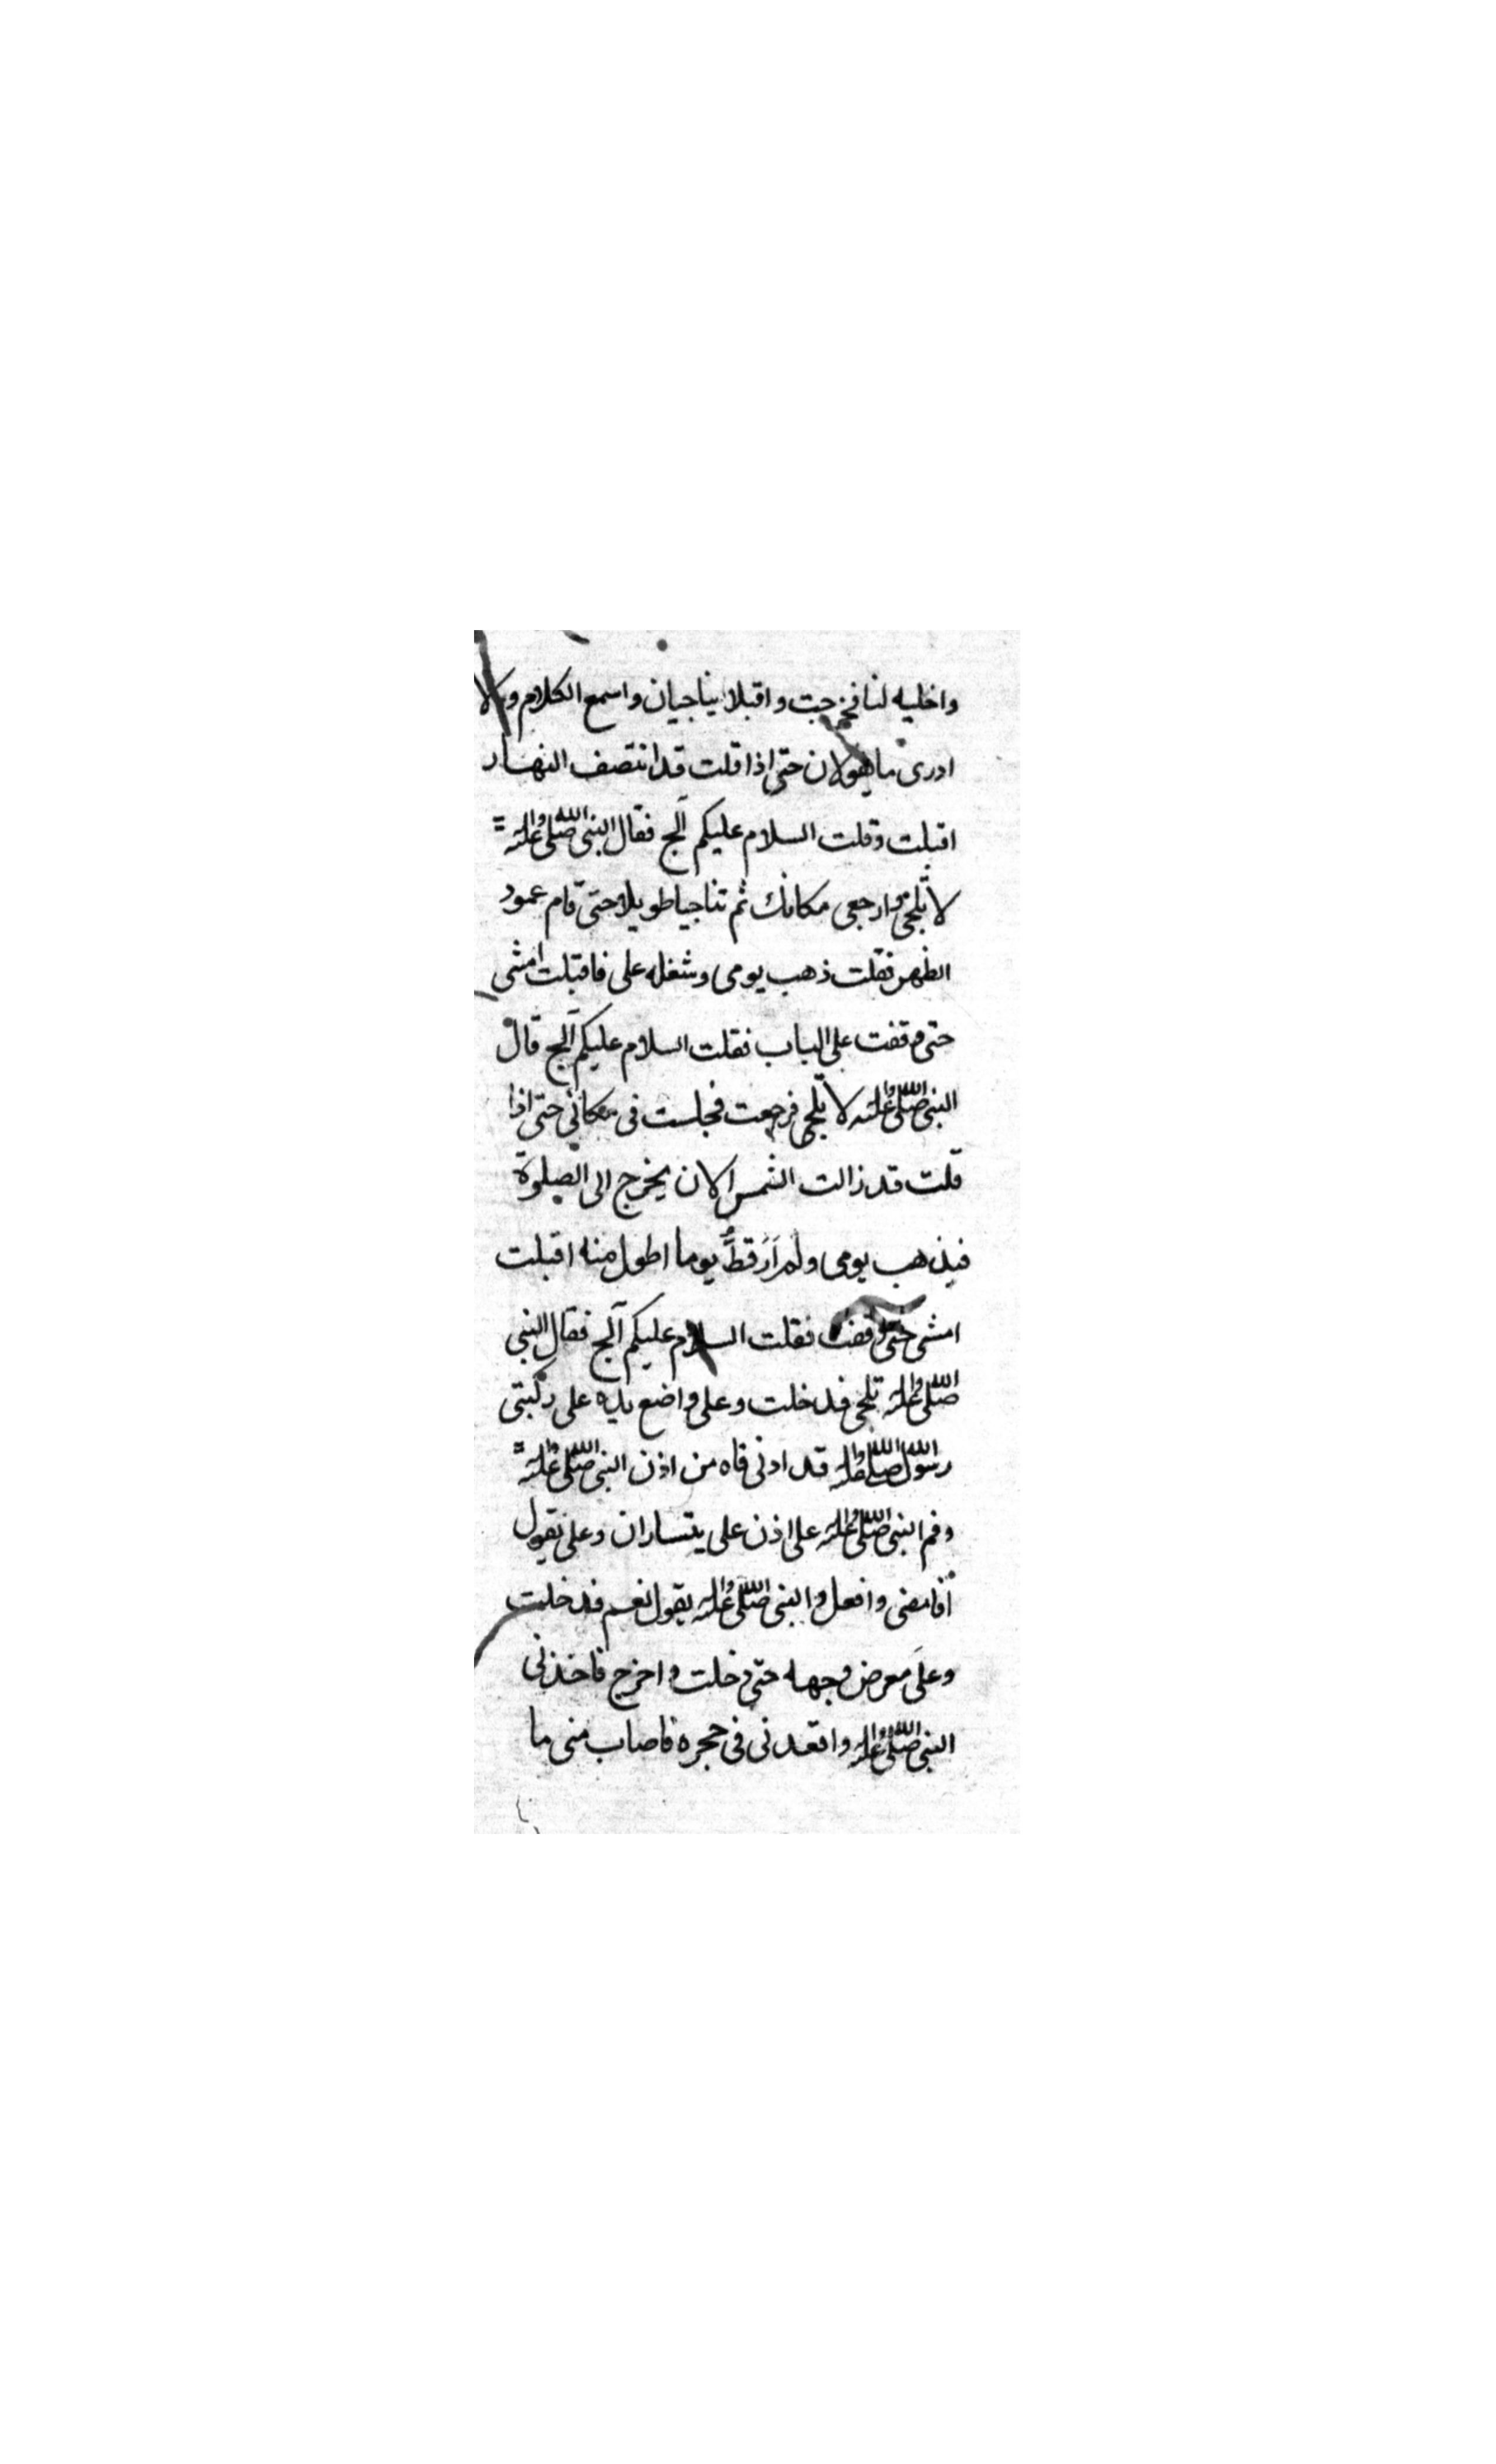 واخليه لنا فخرجت واقبلا يناجيان واسمع الكلام ولا
ادرى ما يقولان حتى اذا قلت قد انتصف النهار
اقبلت وقلت السلام عليكم آلج فقال النبى صلى الله عليه واله
لا تلجى وارجعى مكانك ثم تناجيا طويلا حتى قام عمود
الظهر فقلت ذهب يومى وشغله على فاقبلت امشى
حتى وقفت على الباب فقلت السلام عليكم آلج قال
النبى صلى الله عليه واله لا تلجى فرجعت فجلست فى مكانى حتى اذا
قلت قد زالت الشمس الان يخرج الى الصلوة
فيذهب يومى ولم اَرَ قطُّ يوما اطول منه اقبلت
امشى حتى وقفت فقلت السلام عليكم آلج فقال النبى
صلى الله عليه واله تلجى فدخلت وعلى واضع يده على ركبتى
رسول الله صلى الله عليه واله قد ادنى فاه من اذن النبى صلى الله عليه واله
وفم النبى صلى الله عليه واله على اذن على يتساران وعلى يقول
أفامضى وافعل والنبى صلى الله عليه واله يقول نعم فدخلت
وعلى معرض وجهه حتى دخلت واخرج فاخذنى
النبى صلى الله عليه واله واقعدنى فى حجره فاصاب منى ما